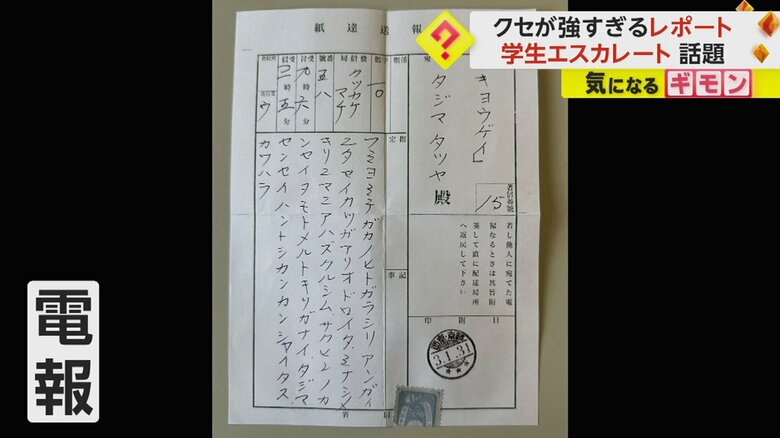 クセが強すぎるレポート
学生エスカレート 話題
気になるギモン
電報
紙達送報
キョウゲイ」
タジマタツヤ 殿
15
若し他人に宛てた電報
なるときは其旨附
箋して直に配達局所
へ返戻して下さい
指定
記事
日附印
3.1.31
發信局
クツカケマチ
番號
五八
受付
九時六分
受信
三時五分
ウ
フミヨミチガカノヒトガラシリアンガイ
ニタセイカツガアリオドロイタ、ミナシメ
キリニマニアハズクルシム、サクヒンノカ
ンセイヲモトメルトキリガナイ、タジマ
センセイハントシカンカンシャイタス
カワハラ